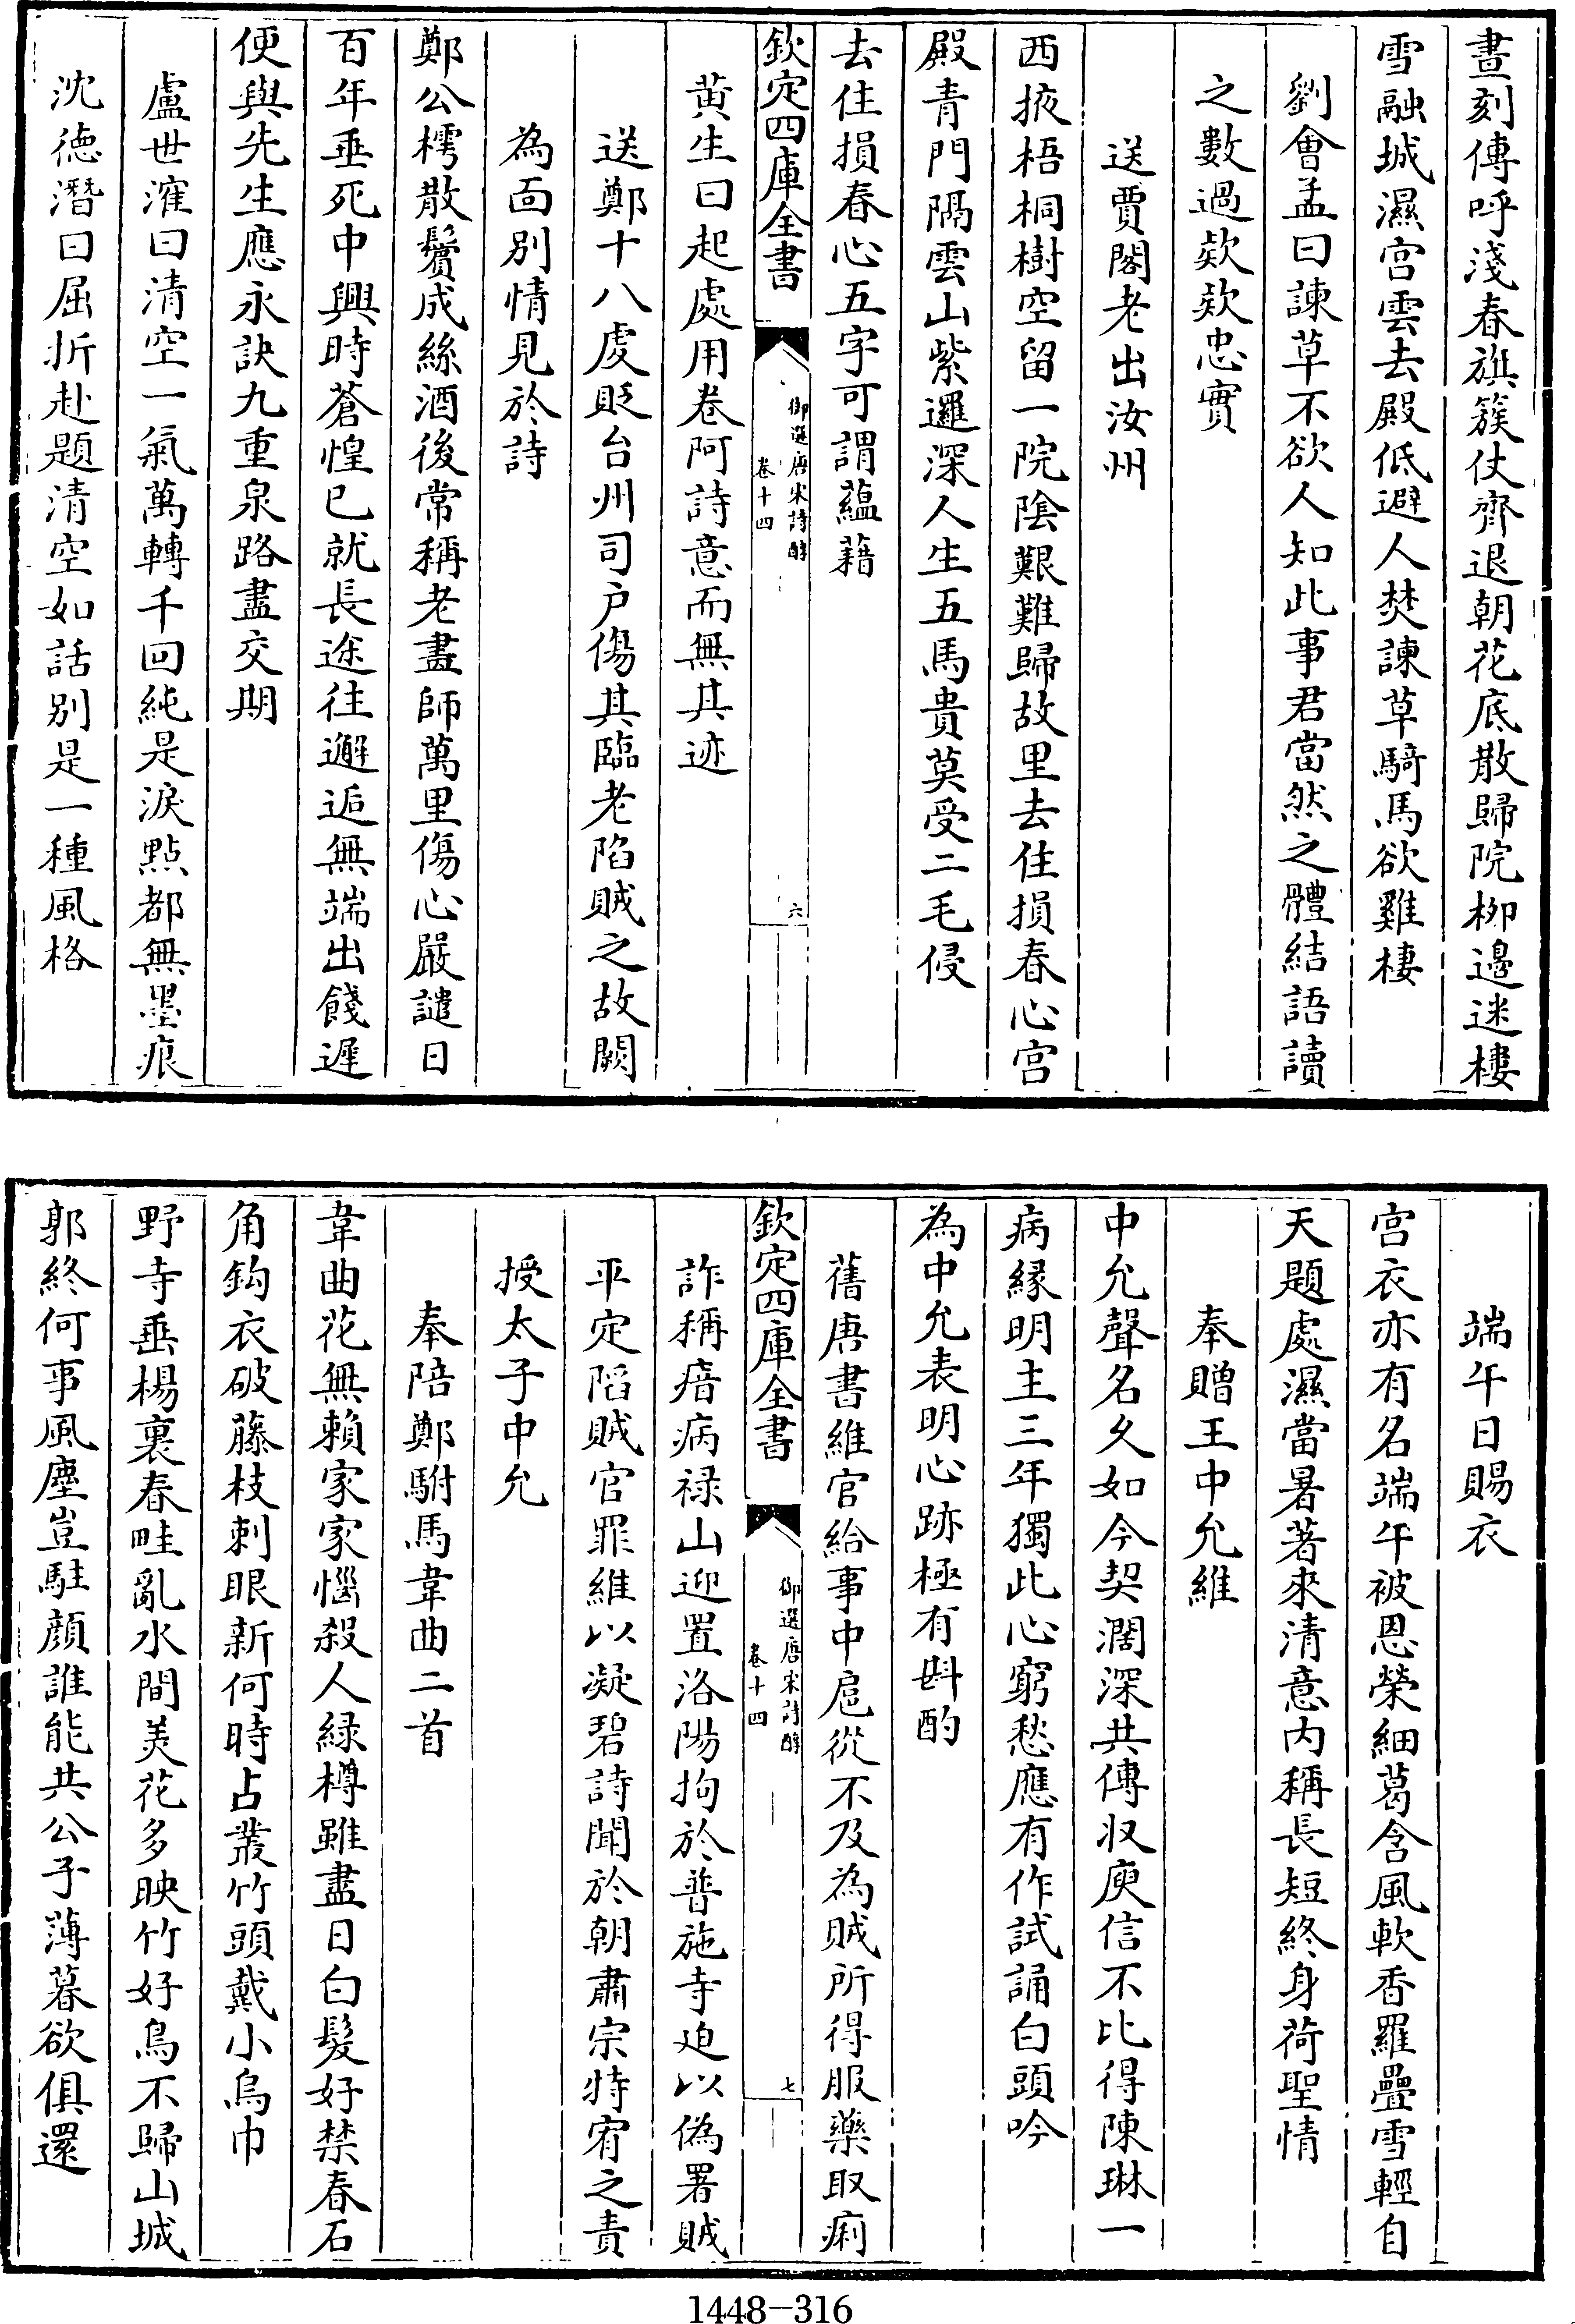 晝刻傳呼淺春旗簇仗齊退朝花底散歸院柳邊迷樓
雪融城濕宫雲去殿低避人焚諫草騎馬欲雞棲
劉會孟曰諫草不欲人知此事君當然之體結語讀
之數過欵欵忠實
送賈閣老出汝州
西掖梧桐樹空留一院陰艱難歸故里去住損春心宫
殿青門隔雲山紫邏深人生五馬貴莫受二毛侵
去住損春心五字可謂蘊藉
欽定四庫全書
御選唐宋詩醇
卷十四
六
黄生曰起處用卷阿詩意而無其迹
送鄭十八虔貶台州司户傷其臨老陷賊之故闕
為面别情見於詩
鄭公樗散鬢成絲酒後常稱老畫師萬里傷心嚴譴日
百年垂死中興時蒼惶已就長途往邂逅無端出餞遲
便與先生應永訣九重泉路盡交期
盧世㴶曰清空一氣萬轉千回純是淚點都無墨痕
沈德潛曰屈折赴題清空如話别是一種風格
端午日賜衣
宫衣亦有名端午被恩榮細葛含風軟香羅疊雪輕自
天題處濕當暑著來清意内稱長短終身荷聖情
奉贈王中允維
中允聲名久如今契濶深共傳収庾信不比得陳琳一
病縁明主三年獨此心窮愁應有作試誦白頭吟
為中允表明心跡極有斟酌
舊唐書維官給事中扈從不及為賊所得服藥取痢
欽定四庫全書
御選唐宋詩醇
卷十四
七
詐稱瘖病禄山迎置洛陽拘於普施寺迫以偽署賊
平定陷賊官罪維以凝碧詩聞於朝肅宗特宥之責
授太子中允
奉陪鄭駙馬韋曲二首
韋曲花無賴家家惱殺人緑樽雖盡日白髮好禁春石
角鈎衣破藤枝刺眼新何時占叢竹頭戴小烏巾
野寺垂楊裏春畦亂水間美花多映竹好鳥不歸山城
郭終何事風塵豈駐顔誰能共公子薄暮欲俱還
1448-316